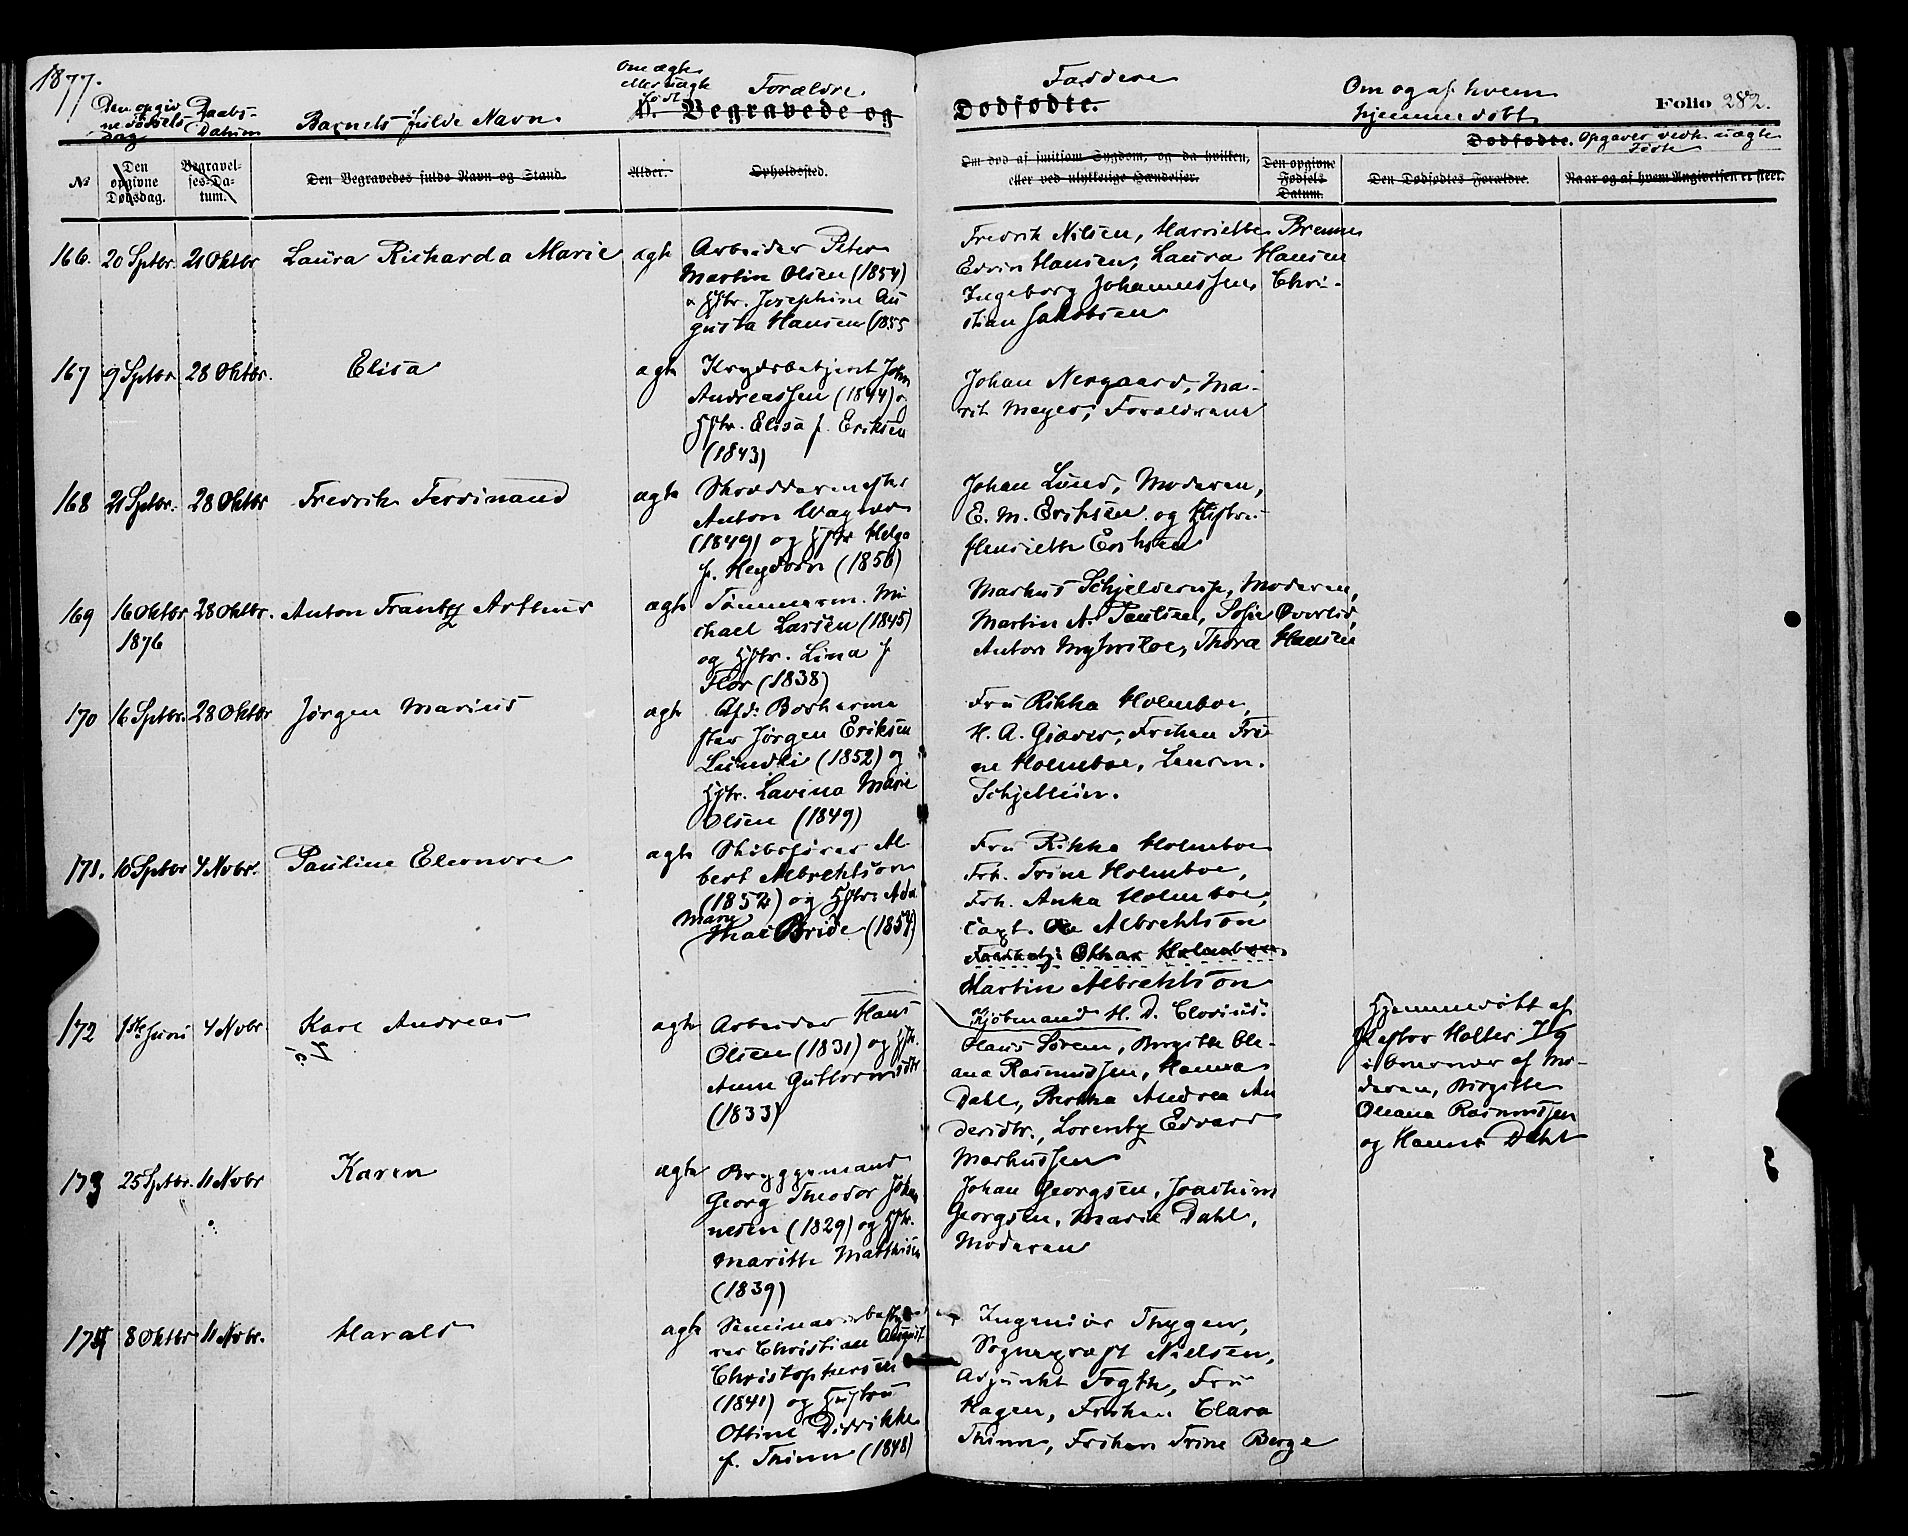 1877.
Den opgivne Fødsels Dag
Daabs-Datum
Barnets fulde Navn
Om ægte eller uægte født
Forældre
Faddere
Om og af hvem hjemmedøbt
Folio 282.
D. Begravede og Dødfødte.
Dødfødte. Opgaver vedk. uægte Fødte
№
Den opgivne Dødsdag.
Begravelses-Datum.
Den Begravedes fulde Navn og Stand.
Alder.
Opholdssted.
Om død af smitsom Sygdom, og da hvilken, eller ved ulykkelige Hændelser.
Den opgivne Fødsels Datum.
Den Dødfødtes Forældre.
Naar og af hvem Angivelsen er skeet.
166. 20 Sptbr. 21 Oktbr Laura Richarda Marie ægte
Arbeider Peter
Martin Olsen (1854)
& Hstr. Josephine Au
gusta Hansen (1855
Fredrik Nilsen, Harriette Bremer
Edvin Hansen, Laura Hansen
Ingeborg Johannessen, Chri-
stian Jakobsen
167 9 Sptbr 28 Oktbr. Elisa ægte
Krydsbetjent John
Andreassen (1844) og
Hstr. Elisa f. Eriksen
(1843)
Johan Nergaard, Ma-
rit Meyer, Forældrene
168 21 Sptbr. 28 Oktbr Fredrik Ferdinand ægte
Skræddermester
Anton Wagner
(1849) og Hstr Helga
f. Heydorn (1856)
Johan Lund, Moderen,
E. M. Eriksen og Hustru
Henriette Eriksen
169 16 Oktbr 1876 28 Oktbr. Anton Frantz Arthur ægte
Tømmerm. Mi
chael Larsen (1845)
og Hstr. Lina f
Flor (1838)
Markus Schjelderup, Moderen,
Martin A. Paulsen, Sofie Overlid,
Anton Myhrvloe, Thora Hansen
170 16 Sptbr. 28 Oktbr Jørgen Marius ægte
Afd: Borkerme
ster Jørgen Eriksen
Lundli (1852) og
Hstr. Lavina Marie
Olsen (1849)
Fru Rikka Holmboe,
H. A. Giæver, Frøken Tri
ne Holmboe, Lensm.
Schjelliin.
171. 10 Sptbr 4 Novbr. Pauline Eleonore ægte
Skibsfører Al
bert Albrehtson
(1852) og Hstr. Ada
Mary
Mac Bride (1854)
Fru Rikka Holmboe
Frk. Trine Holmboe,
Frk. Anka Holmboe,
Capt. Ole Albrehtson
Othar Holmboe
Martin Albrehtson
172 1ste Juni 4 Novbr Karl Andreas ægte
Arbeider Hans
Olsen (1831) og Hstr.
Anne Guttormsdtr
(1833)
Kjøbmand H. D. Clodius
Hans Sørem, Birgitte Ole-
ana Rasmussen, Hanna
Dahl, Berthe Andrea An
dersdtr., Lorentz Edvard
Markussen
Hjemmedøbt af
Pastor Holter 7/9
i Overvær af Mo-
deren, Birgitte
Oleana Rasmussen
og Hanna Dahl
173 25 Sptbr. 11 Novbr Karen ægte
Bryggemand
Georg Theodor Johan
nesen (1829) og Hstr.
Maritte Matthisen
(1839)
Johan Georgsen, Joachim
Georgsen, Marie Dahl,
Moderen
174 8 Oktbr 11 Novbr. Harald ægte
Seminariebesty
rer Christian August
Christophersen
(1841) og Hustru
Ottine Didrikke
f. Thinn (1848)
Ingeniør Thygen,
Sogneprest Nielsen,
Adjunkt Fogth, Fru
Hagen, Frøken Clara
Thinn, Frøken Trine Berge